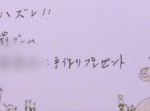 ハズレ!!
罰ゲーム
:手作りプレゼント